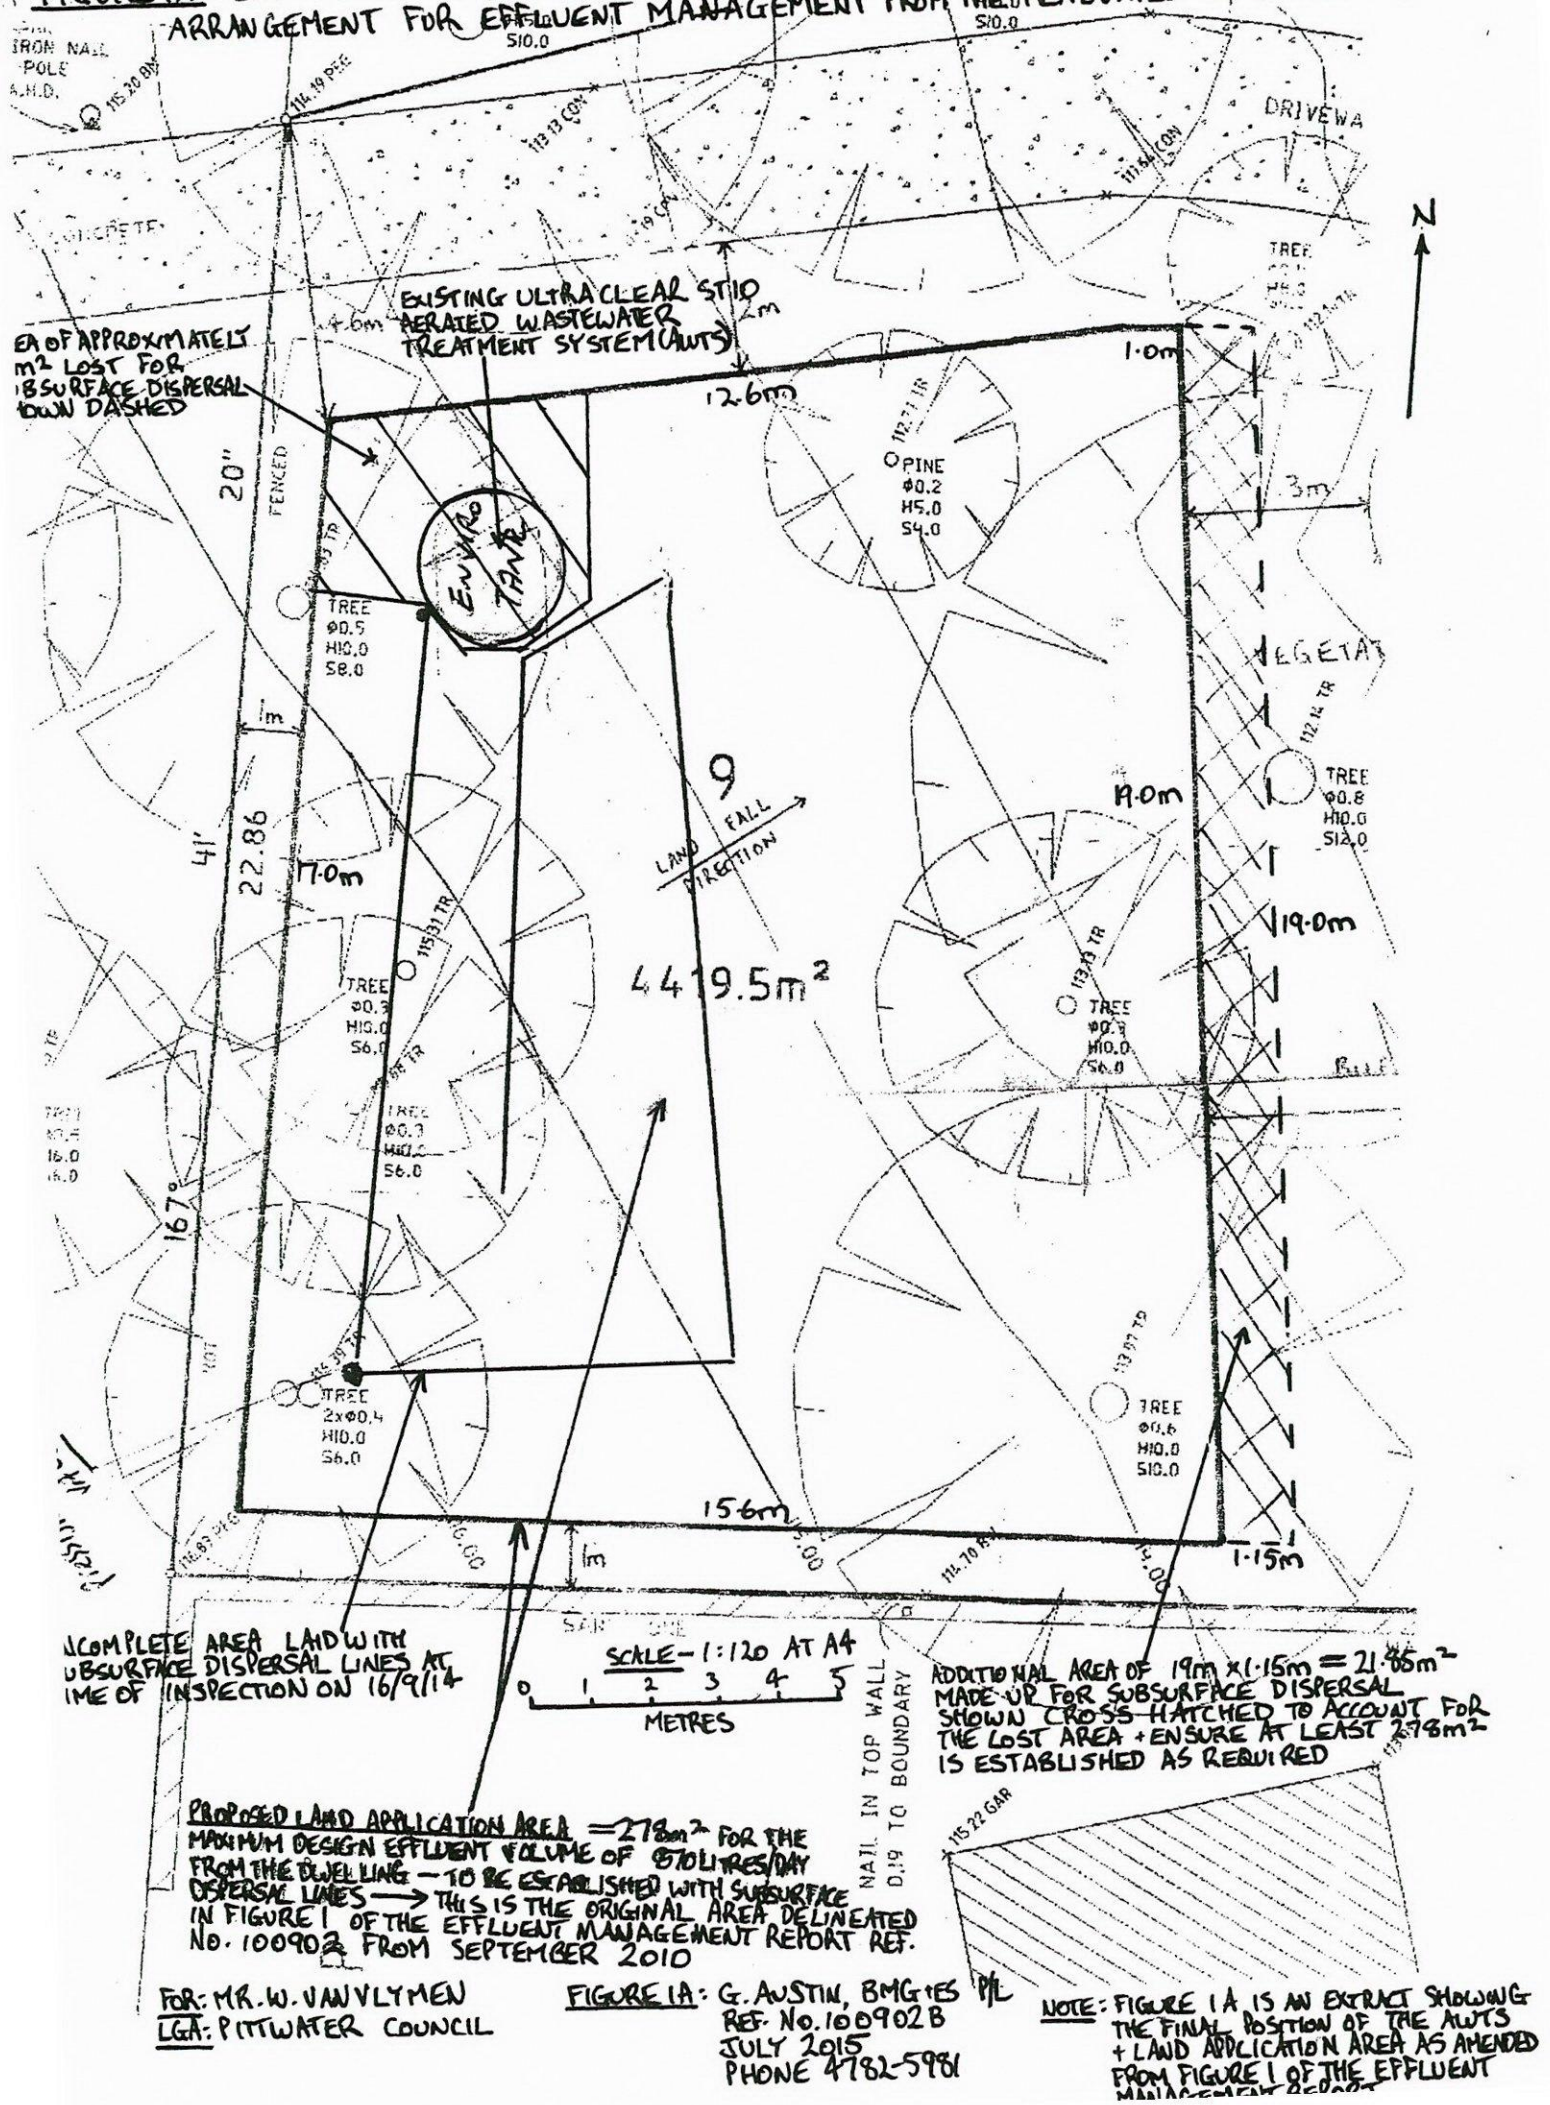 ARRANGEMENT FOR EFFLUENT MANAGEMENT FROM THE
S10.0
S10.0
IRON NAIL
POLE
A.H.D.
115.20 BM
114.19 PEG
113.13 CON
111.64 CON
DRIVEWA
N
EXISTING ULTRA CLEAR ST10
AERATED WASTEWATER
TREATMENT SYSTEM (AWTS)
2m
EA OF APPROXIMATELY
m² LOST FOR
BSURFACE DISPERSAL
OWN DASHED
12.6m
1.0m
TREE
112.71 TR
PINE
Ø0.2
H5.0
S4.0
3m
20"
FENCED
ENVIRO
TANK
TREE
Ø0.5
H10.0
S8.0
EGETAT
112.14 TR
TREE
Ø0.8
H10.0
S12.0
1m
9
LAND FALL
DIRECTION
19.0m
41'
22.86
17.0m
19.0m
115.31 TR
TREE
Ø0.3
H10.0
S6.0
4419.5m²
113.13 TR
TREE
H10.0
S6.0
TREE
Ø0.3
H10.0
S6.0
167°
115.39 TR
TREE
2xØ0.4
H10.0
S6.0
113.97 TR
TREE
Ø0.6
H10.0
S10.0
15.6m
1m
1.15m
14.00
NCOMPLETE AREA LAID WITH
UBSURFACE DISPERSAL LINES AT
IME OF INSPECTION ON 16/9/14
SCALE - 1:120 AT A4
0 1 2 3 4 5
METRES
NAIL IN TOP WALL
0.19 TO BOUNDARY
ADDITIONAL AREA OF 19m x 1.15m = 21.85m²
MADE UP FOR SUBSURFACE DISPERSAL
SHOWN CROSS HATCHED TO ACCOUNT FOR
THE LOST AREA + ENSURE AT LEAST 278m²
IS ESTABLISHED AS REQUIRED
115.22 GAR
PROPOSED LAND APPLICATION AREA = 278m² FOR THE
MAXIMUM DESIGN EFFLUENT VOLUME OF 870 LITRES/DAY
FROM THE DWELLING - TO BE ESTABLISHED WITH SUBSURFACE
DISPERSAL LINES → THIS IS THE ORIGINAL AREA DELINEATED
IN FIGURE 1 OF THE EFFLUENT MANAGEMENT REPORT REF.
NO. 100902 FROM SEPTEMBER 2010
FOR: MR. W. VAN VLYMEN
LGA: PITTWATER COUNCIL
FIGURE 1A: G. AUSTIN, BMG+ES P/L
REF. No. 100902B
JULY 2015
PHONE 4782-5981
NOTE: FIGURE 1A IS AN EXTRACT SHOWING
THE FINAL POSITION OF THE AWTS
+ LAND APPLICATION AREA AS AMENDED
FROM FIGURE 1 OF THE EFFLUENT
MANAGEMENT REPORT